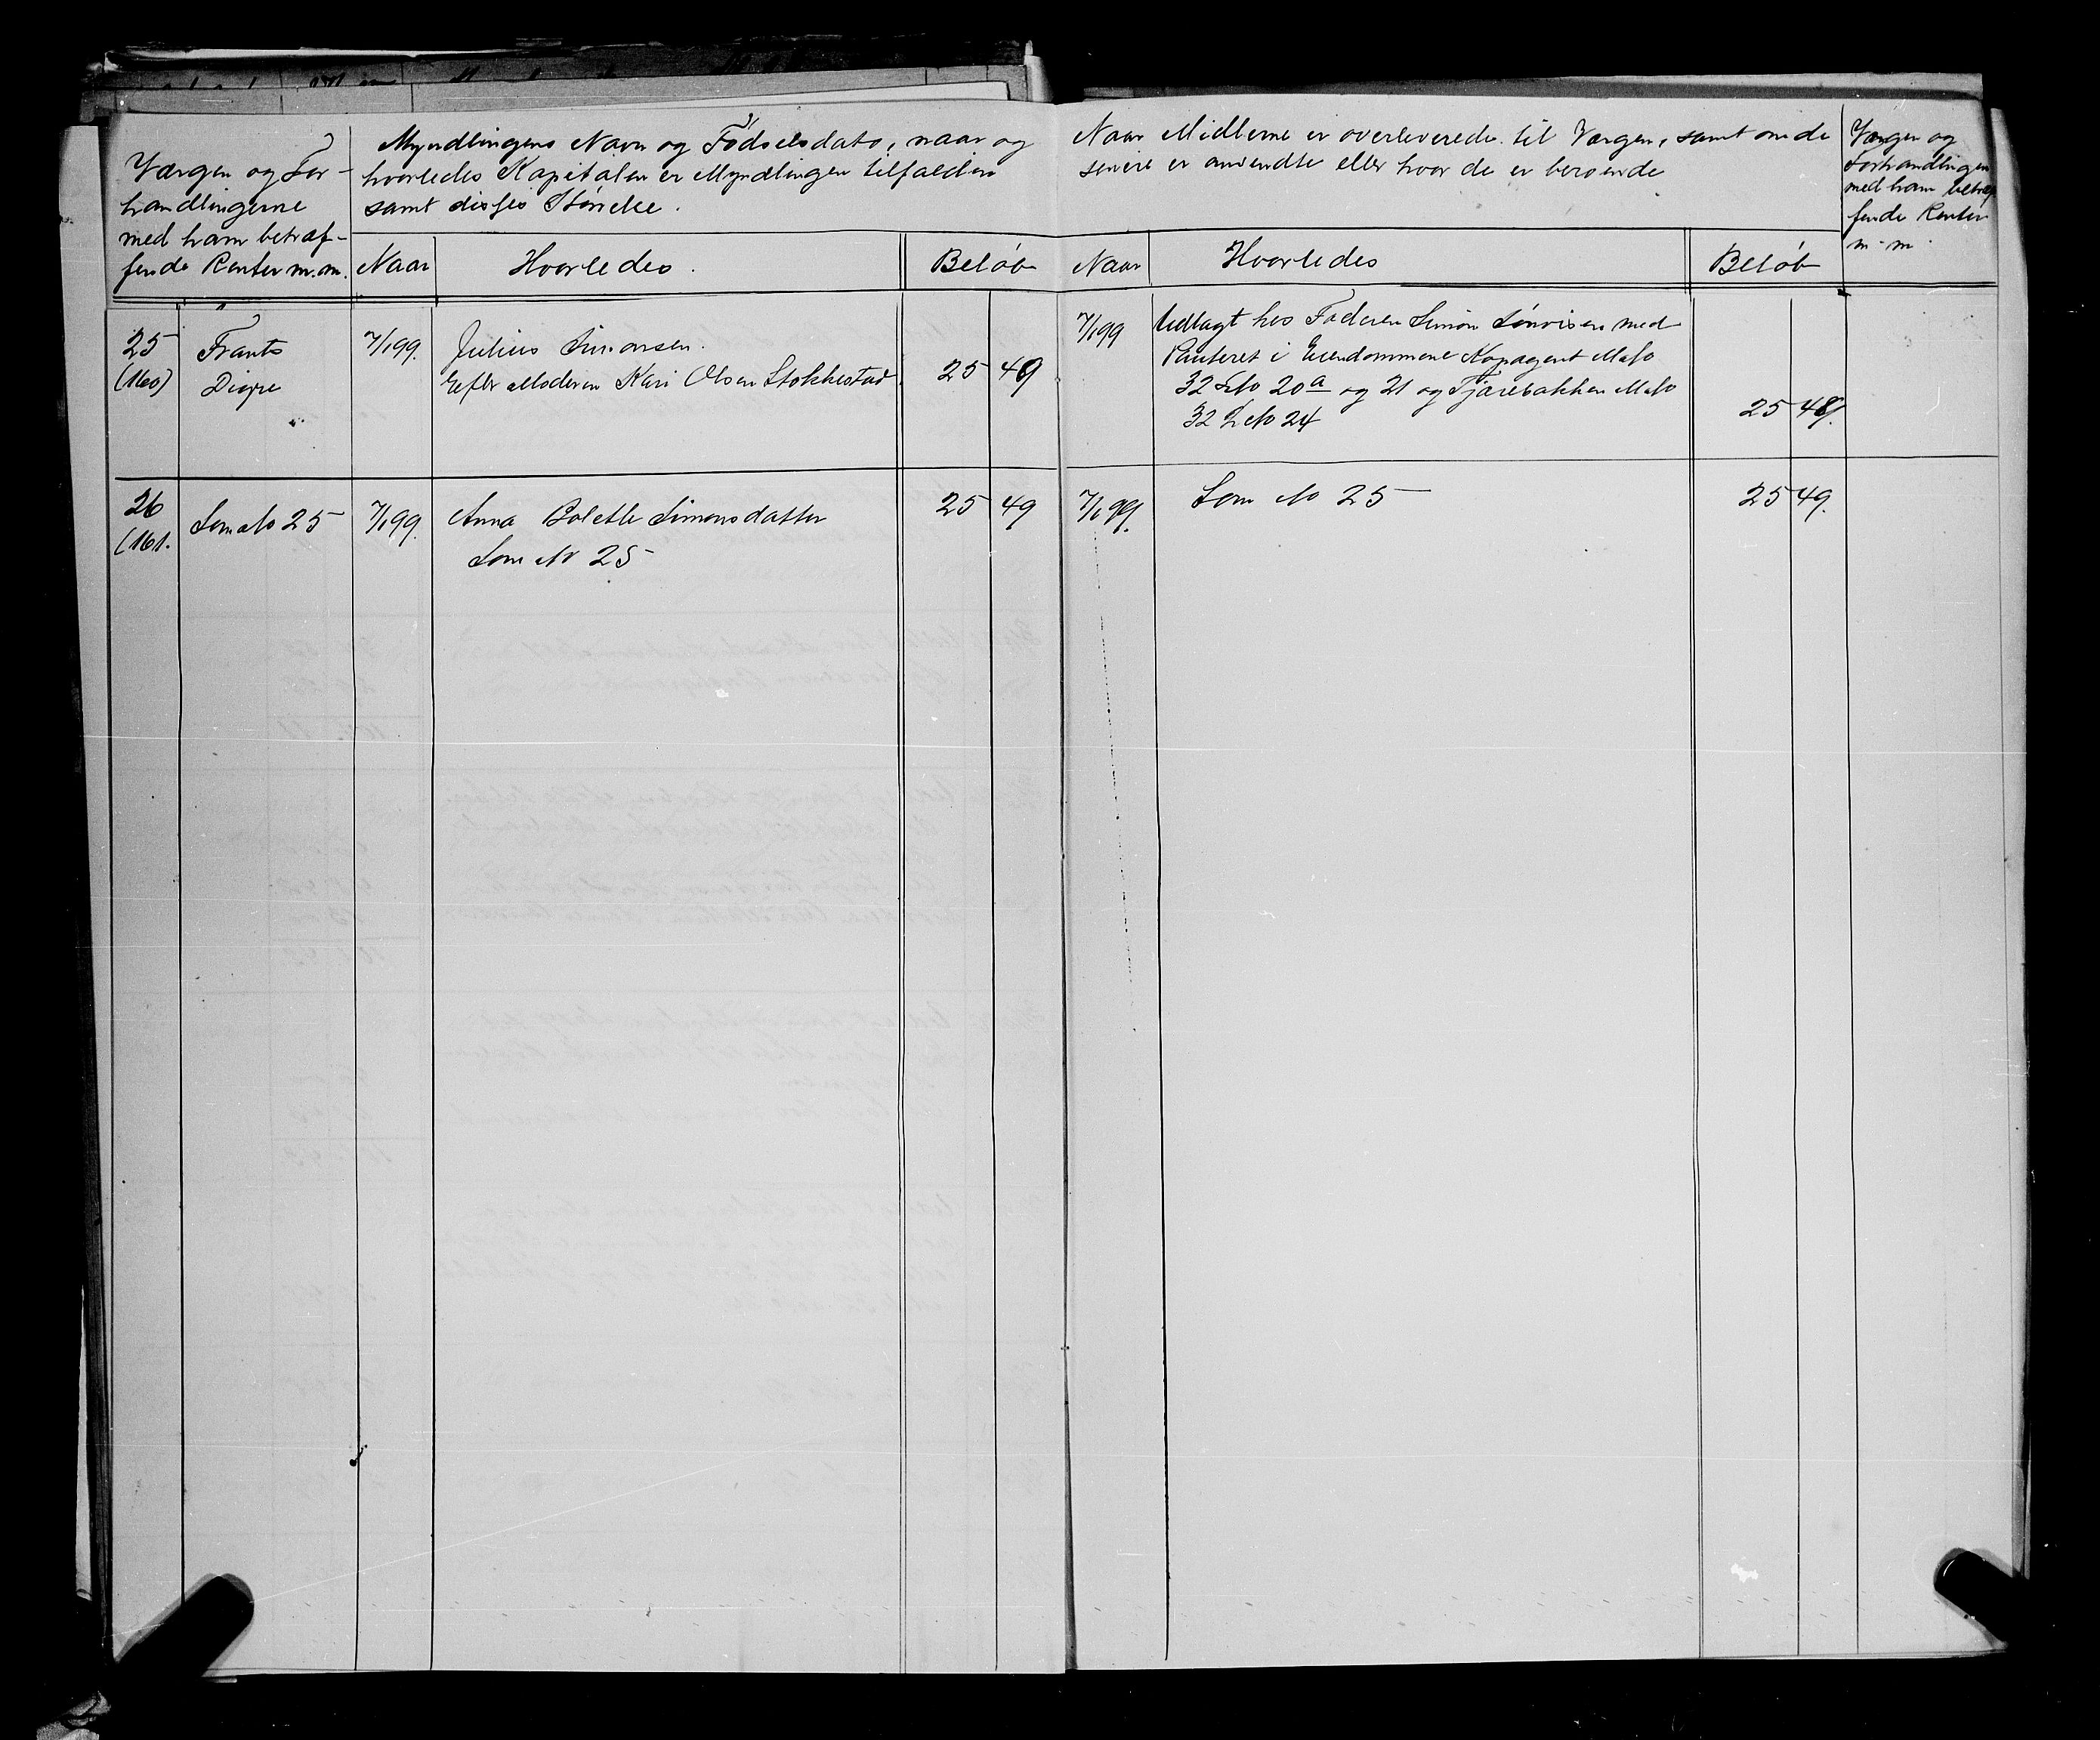 Værgen og For-
handlingerne
med ham betræf-
fende Renter m.m.
Myndlingens Navn og Fødselsdato, naar og
hvorledes Kapitalen er Myndlingen tilfalden
samt disses Størrelse.
Naar
Hvorledes.
Beløb
Naar Midlerne er overleverede til Værgen, samt om de
senere er anvendte eller hvor de er beroende
Naar
Hvorledes
Beløb
Værgen og
Forhandlingen
med ham betræf
fende Renter
m.m.
25
(160)
Frants
7/1 99.
Julius Simonsen.
Efter Moderen Kari Olsen Stokkestad
25 49
7/1 99
Udlagt hos Faderen Simon Tønnisen med
Panteret i Eiendommene Kopagent MNo
32 LNo 20a og 21 og Tjærebakken MNo
32 LNo 24
25 49.
26
(161.
Som No 25
7/1 99.
Anna Bolette Simonsdatter
Som No 25
25 49
7/1 99.
Som No 25
25 49.